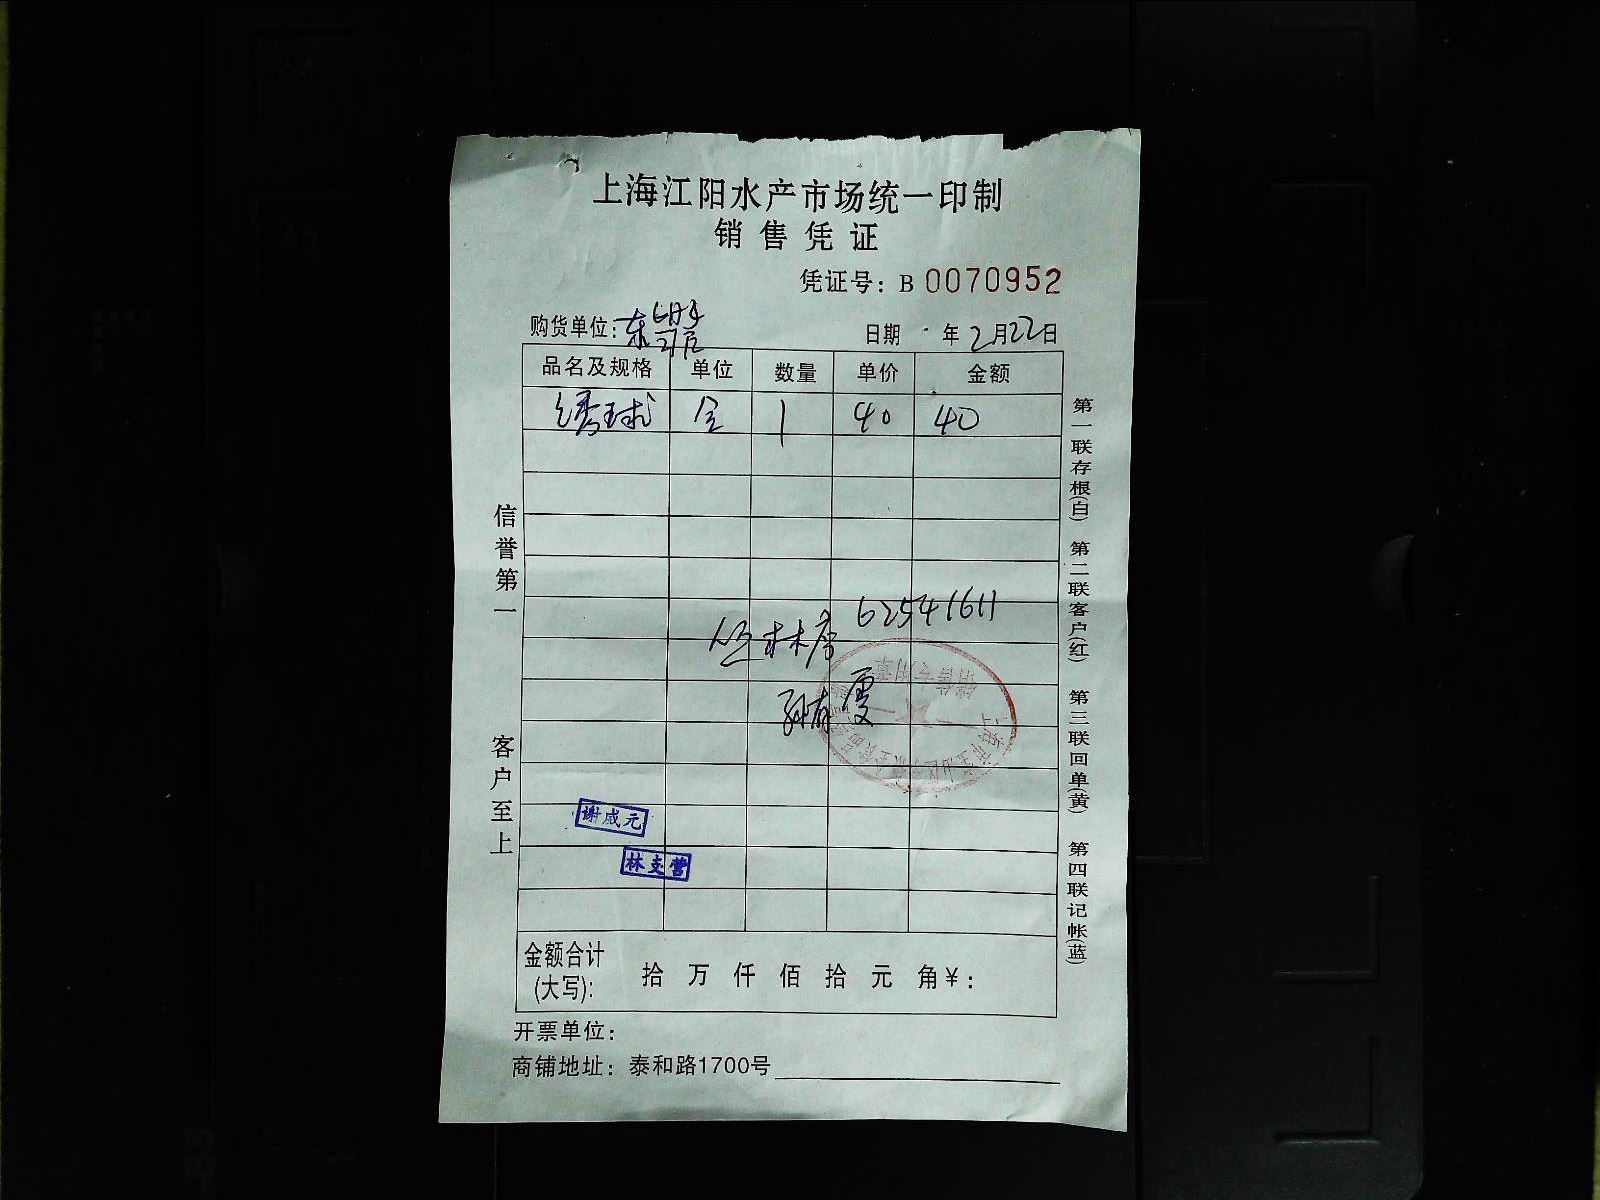 上海江阳水产市场统一印制
销售凭证
凭证号：B 0070952
购货单位：东
日期 年 2月22日
品名及规格 单位 数量 单价 金额
绣球 1 40 40
62541611
丛林店
孙有霞
谢成元
林支营
金额合计(大写): 拾 万 仟 佰 拾 元 角￥：
开票单位：
商铺地址：泰和路1700号
信誉第一 客户至上
第一联存根(白) 第二联客户(红) 第三联回单(黄) 第四联记帐(蓝)